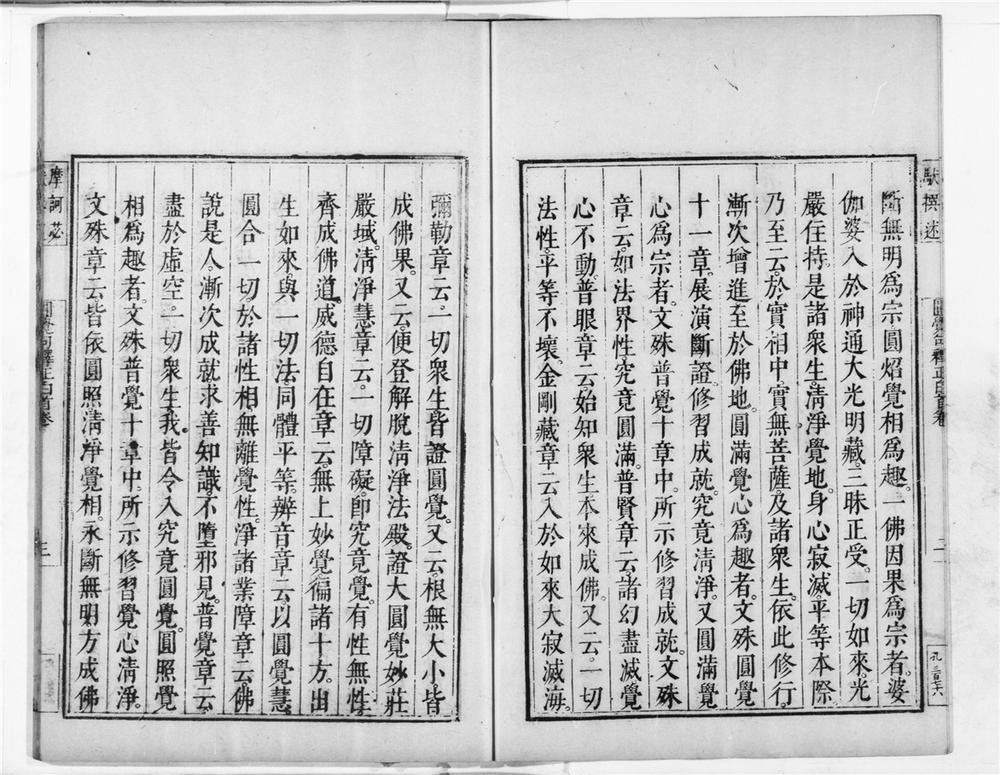 馱撰述
圓覺句釋正白首卷
二
斷無明爲宗圓焰覺相爲趣。一佛因果爲宗者。婆
伽婆入於神通大光明藏。三昧正受。一切如來。光
嚴住持。是諸衆生清淨覺地。身心寂滅。平等本際
乃至云。於實相中。實無菩薩及諸衆生。依此修行。
漸次增進至於佛地。圓滿覺心爲趣者。文殊圓覺
十一章。展演斷證。修習成就。究竟清淨。又圓滿覺
心爲宗者。文殊普覺十章中。所示修習成就。文殊
章云。如法界性。究竟圓滿。普賢章云。諸幻盡滅。覺
心不動。普眼章云。始知衆生本來成佛。又云。一切
法性。平等不壞。金剛藏章云。入於如來大寂滅海。
彌勒章云。一切衆生。皆證圓覺。又云。根無大小。皆
成佛果。又云。便登解脫清淨法殿。證大圓覺妙莊
嚴域。清淨慧章云。一切障礙。卽究竟覺。有性無性
齊成佛道。威德自在章云。無上妙覺徧諸十方。出
生如來。與一切法。同體平等。辨音章云。以圓覺慧
圓合一切。於諸性相。無離覺性。淨諸業障章云。佛
說是人。漸次成就。求善知識。不墮邪見。普覺章云。
盡於虛空。一切衆生。我皆令入究竟圓覺。圓照覺
相爲趣者。文殊普覺十章中。所示修習覺心清淨。
文殊章云。皆依圓照清淨覺相。永斷無明。方成佛
摩訶苾
三